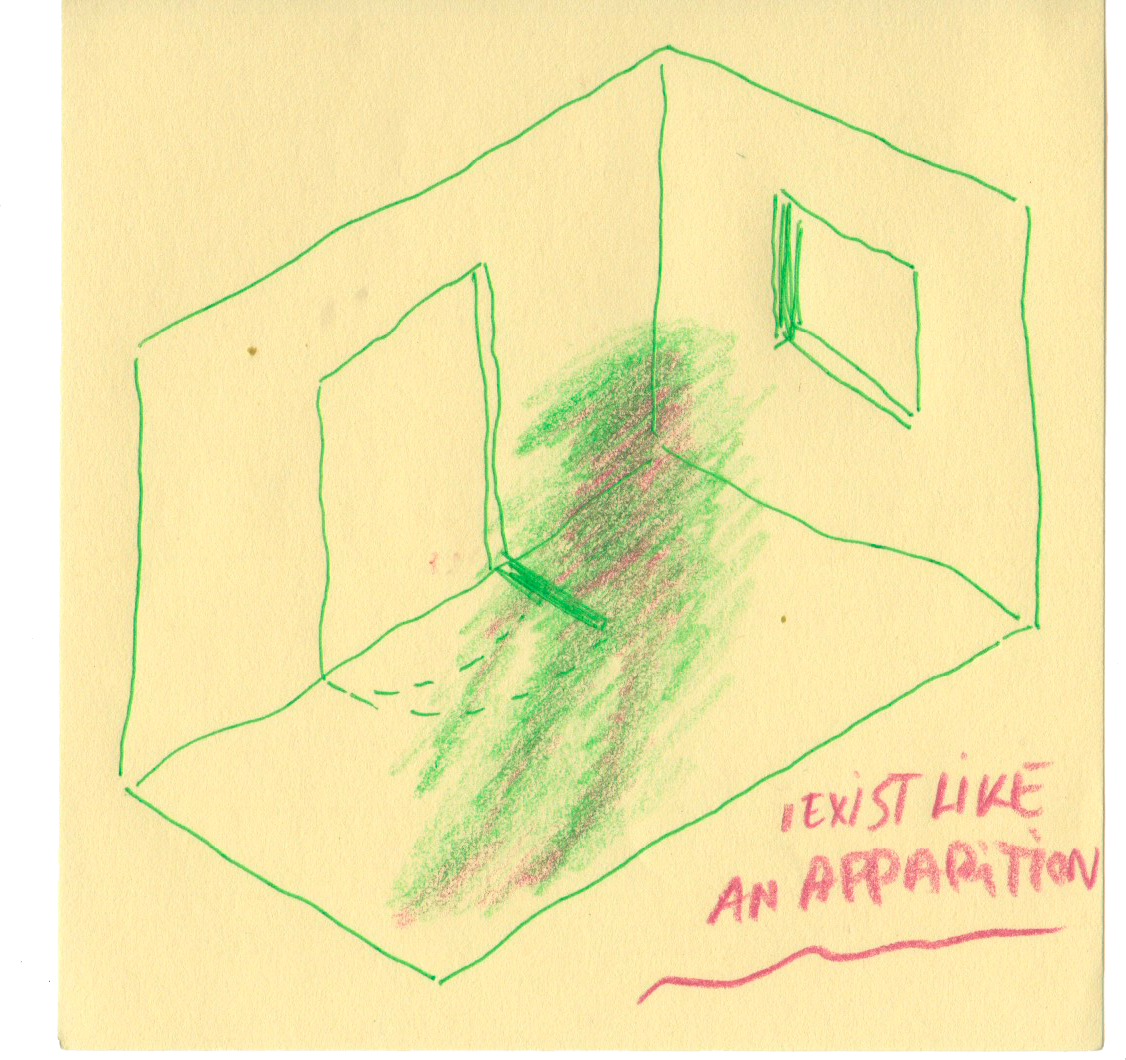 I EXIST LIKE
AN APPARITION